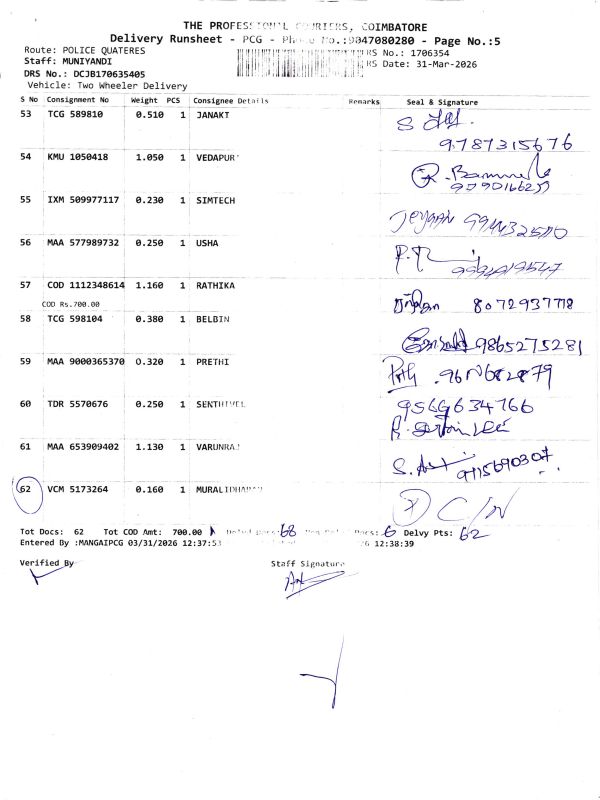 THE PROFESSIONAL COURIERS, COIMBATORE
Delivery Runsheet - PCG - Phone No.:9047080280 - Page No.:5
Route: POLICE QUATERES
RS No.: 1706354
Staff: MUNIYANDI
RS Date: 31-Mar-2026
DRS No.: DCJB170635405
Vehicle: Two Wheeler Delivery
S No Consignment No Weight PCS Consignee Details Remarks Seal & Signature
53 TCG 589810 0.510 1 JANAKI
9787315676
54 KMU 1050418 1.050 1 VEDAPUR
55 IXM 509977117 0.230 1 SIMTECH
56 MAA 577989732 0.250 1 USHA
57 COD 1112348614 1.160 1 RATHIKA
8072937718
COD Rs.700.00
58 TCG 598104 0.380 1 BELBIN
9865275281
59 MAA 9000365370 0.320 1 PRETHI
60 TDR 5570676 0.250 1 SENTHIVEL
9566634766
61 MAA 653909402 1.130 1 VARUNRAJ
9715690307
62 VCM 5173264 0.160 1 MURALIDHARAN
C/N
Tot Docs: 62 Tot COD Amt: 700.00 68 6 Delvy Pts: 62
Entered By :MANGAIPCG 03/31/2026 12:37:53 12:38:39
Verified By
Staff Signature